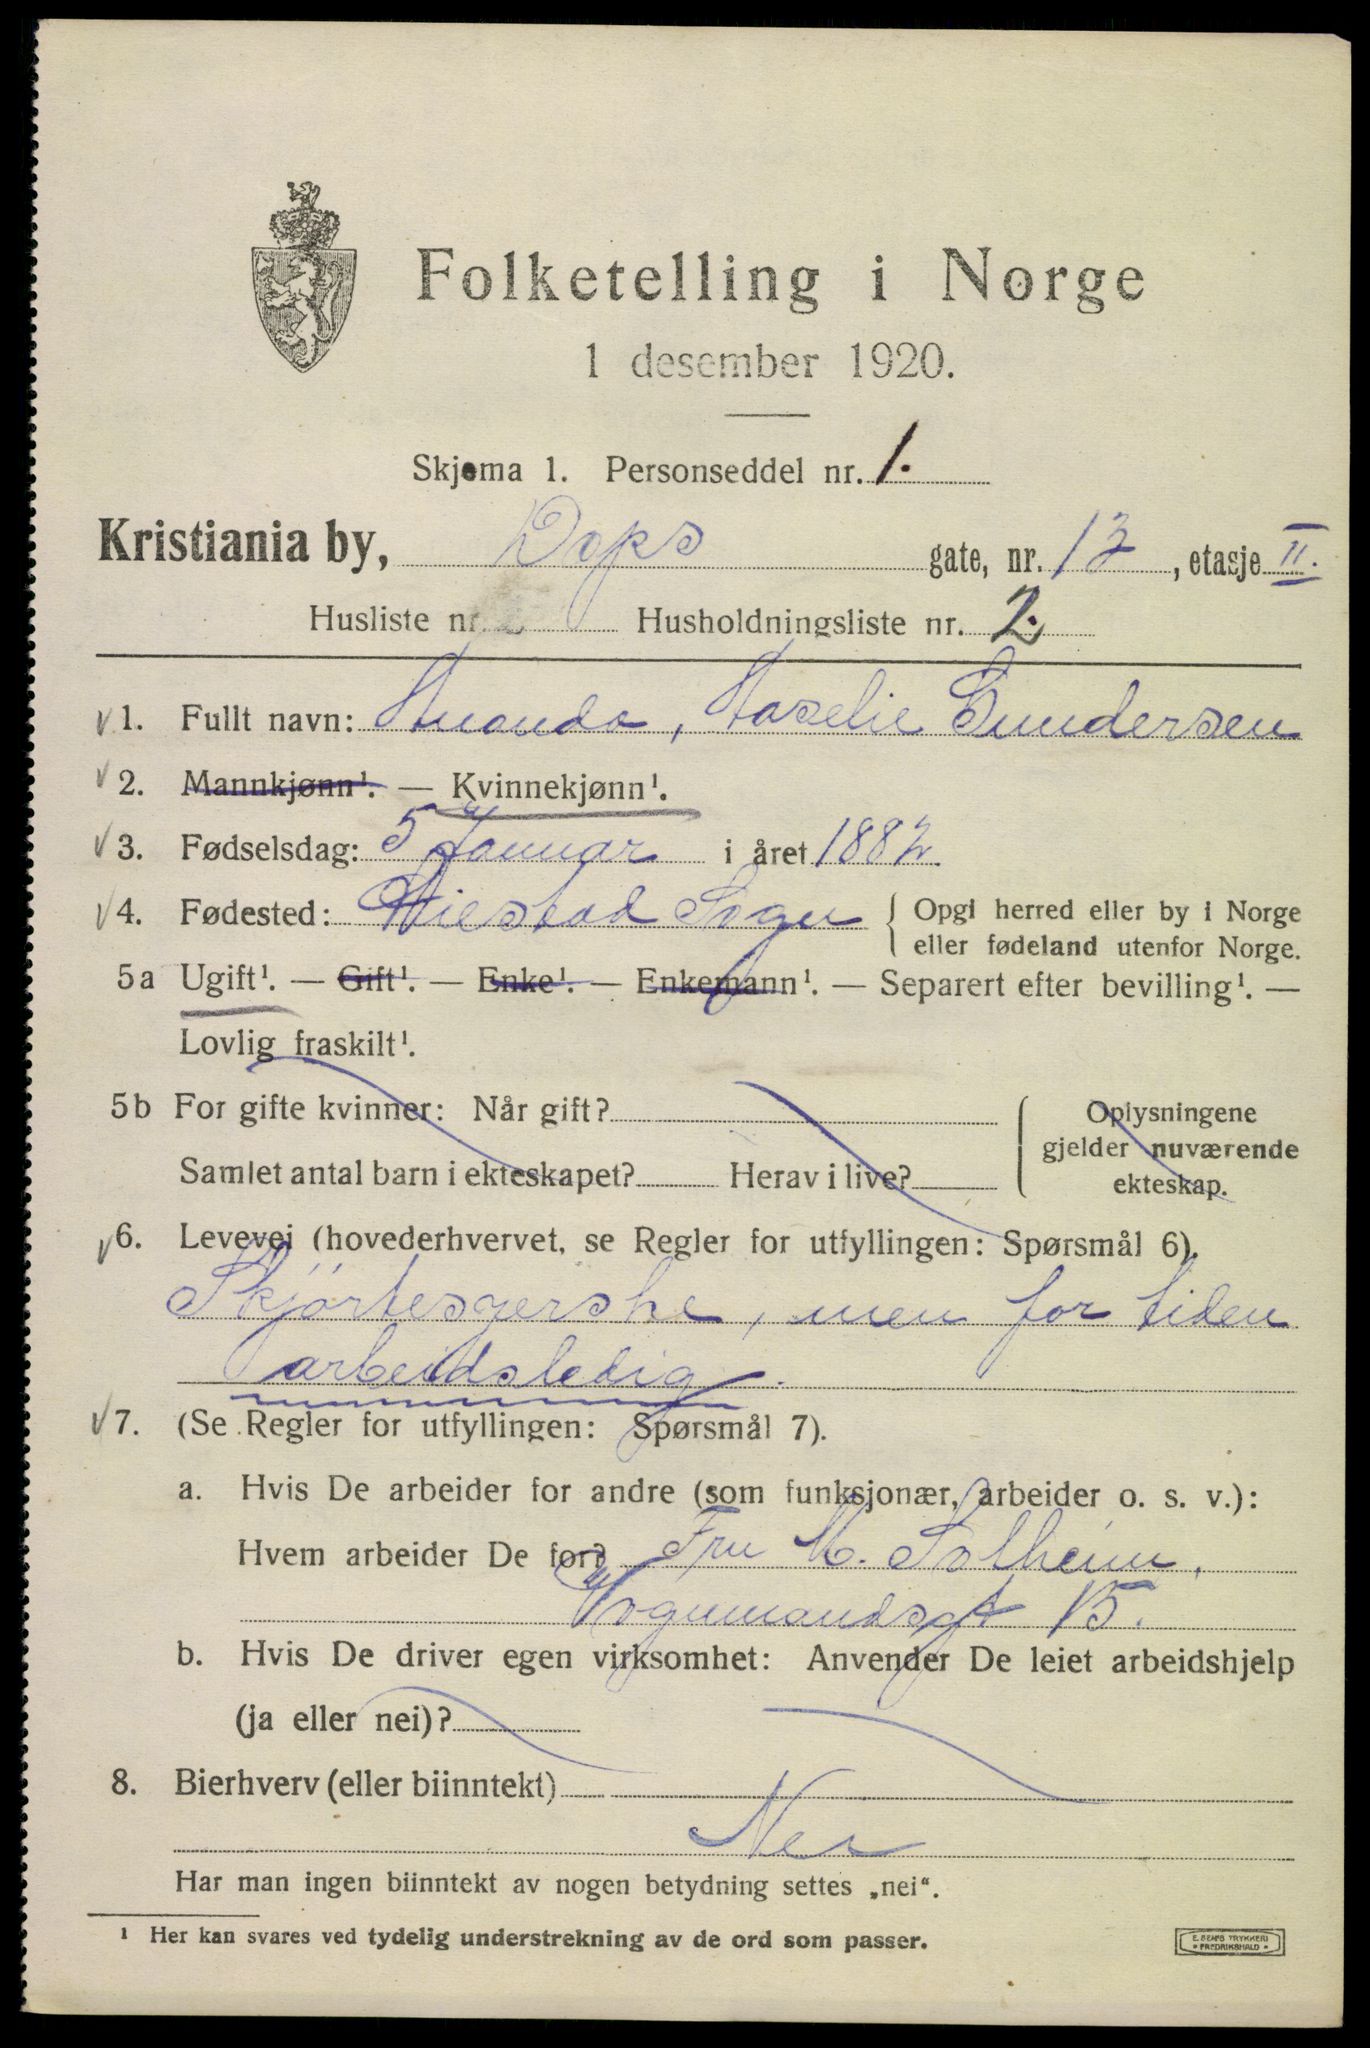 Folketelling i Norge
1 desember 1920.
Skjema 1. Personseddel nr. 1.
Kristiania by, Dops gate, nr. 12, etasje II.
Husliste nr. Husholdningsliste nr. 2.
1. Fullt navn: Amanda, Maselie Gundersen
2. Mannkjønn¹. — Kvinnekjønn¹.
3. Fødselsdag: 5 Januar i året 1882.
4. Fødested: Sogn { Opgi herred eller by i Norge
eller fødeland utenfor Norge.
5a Ugift¹. — Gift¹. — Enke¹. — Enkemann¹. — Separert efter bevilling¹. —
Lovlig fraskilt¹.
5b For gifte kvinner: Når gift? Oplysningene
gjelder nuværende
Samlet antal barn i ekteskapet? Herav i live? ekteskap.
6. Levevei (hovederhvervet, se Regler for utfyllingen: Spørsmål 6).
Skjörtesyerske, men for tiden
arbeidsledig.
7. (Se Regler for utfyllingen: Spørsmål 7).
a. Hvis De arbeider for andre (som funksjonær, arbeider o. s. v.):
Hvem arbeider De for? Fru M. Solheim,
Vognmandsgt 15.
b. Hvis De driver egen virksomhet: Anvender De leiet arbeidshjelp
(ja eller nei)?
8. Bierhverv (eller biinntekt)
Nei
Har man ingen biinntekt av nogen betydning settes „nei“.
¹ Her kan svares ved tydelig understrekning av de ord som passer.
E. SEMS TRYKKERI
FREDRIKSHALD